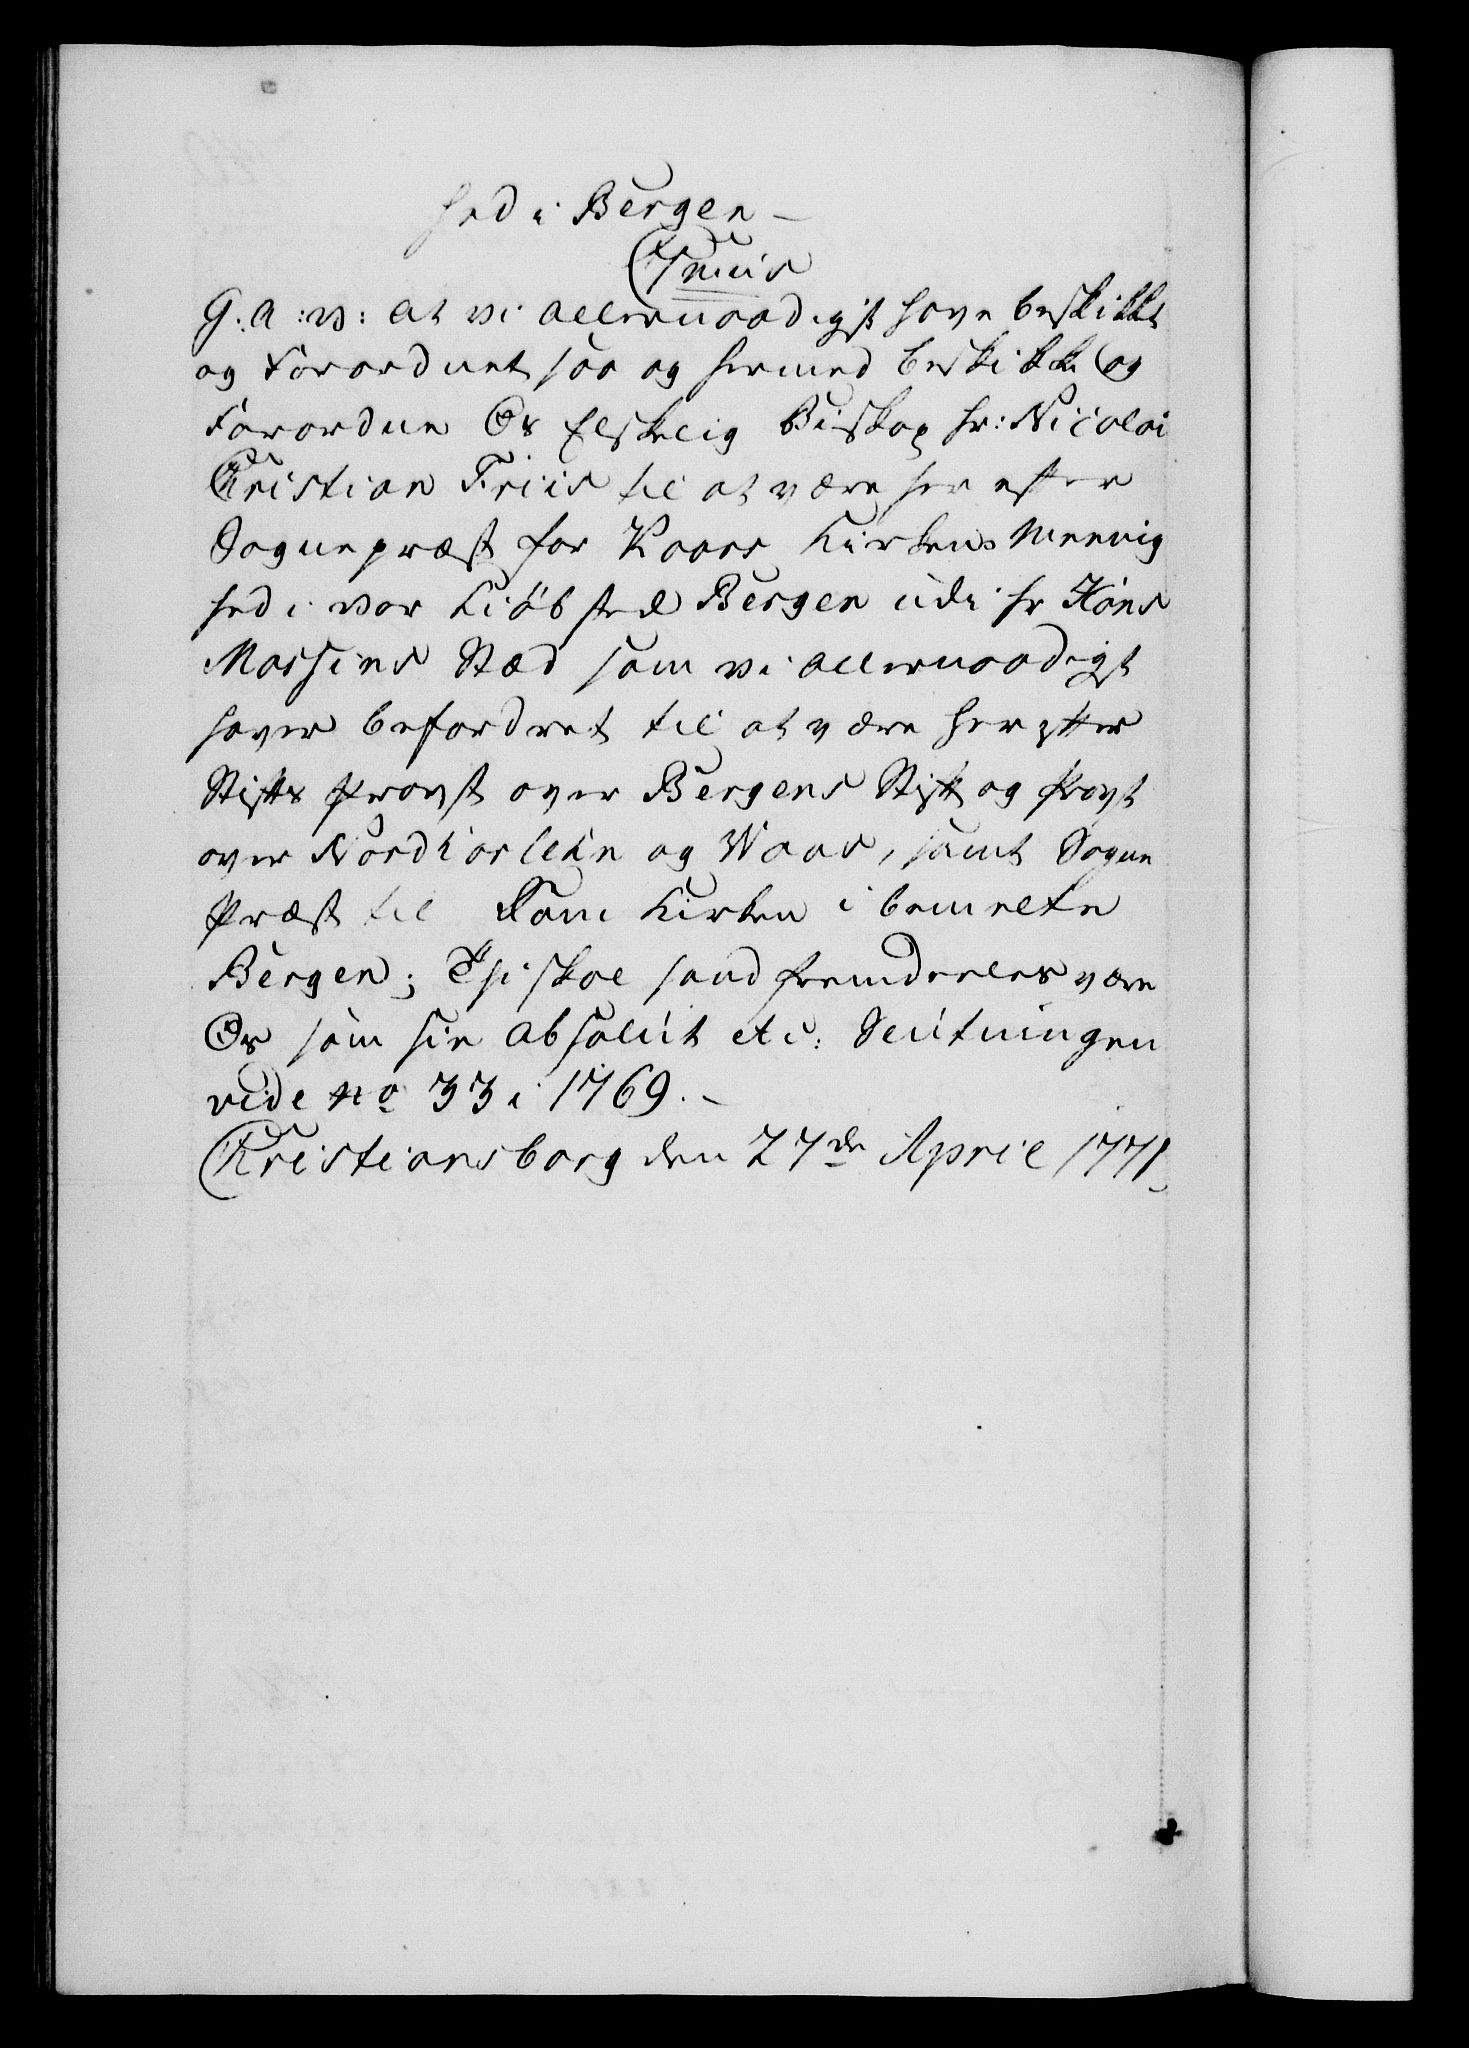 hed i Bergen –
G: A: V: at vi allernaadigst have beskikket
og Forordnet saa og hermed beskikke og
Forordne Os Elskelig Biskop hr: Nicolai
Christian Friis til at være her efter
Sognepræst for Kaars Kirkens Meenig
hed i vor Kiøbsted Bergen udi hr Hans
Mossins Stæd som vi allernaadigst
haver befordret til at være her efter
Stifts Provst over Bergens Stift og Provst
over Nordhorlehn og Woss, samt Sogne
Præst til Dom Kirken i bemelte
Bergen; Thi skal hand fremdeeles være
Os som sin absolut etc: Slutningen
vide No 33 i 1769. –
Christiansborg den 27de April 1771